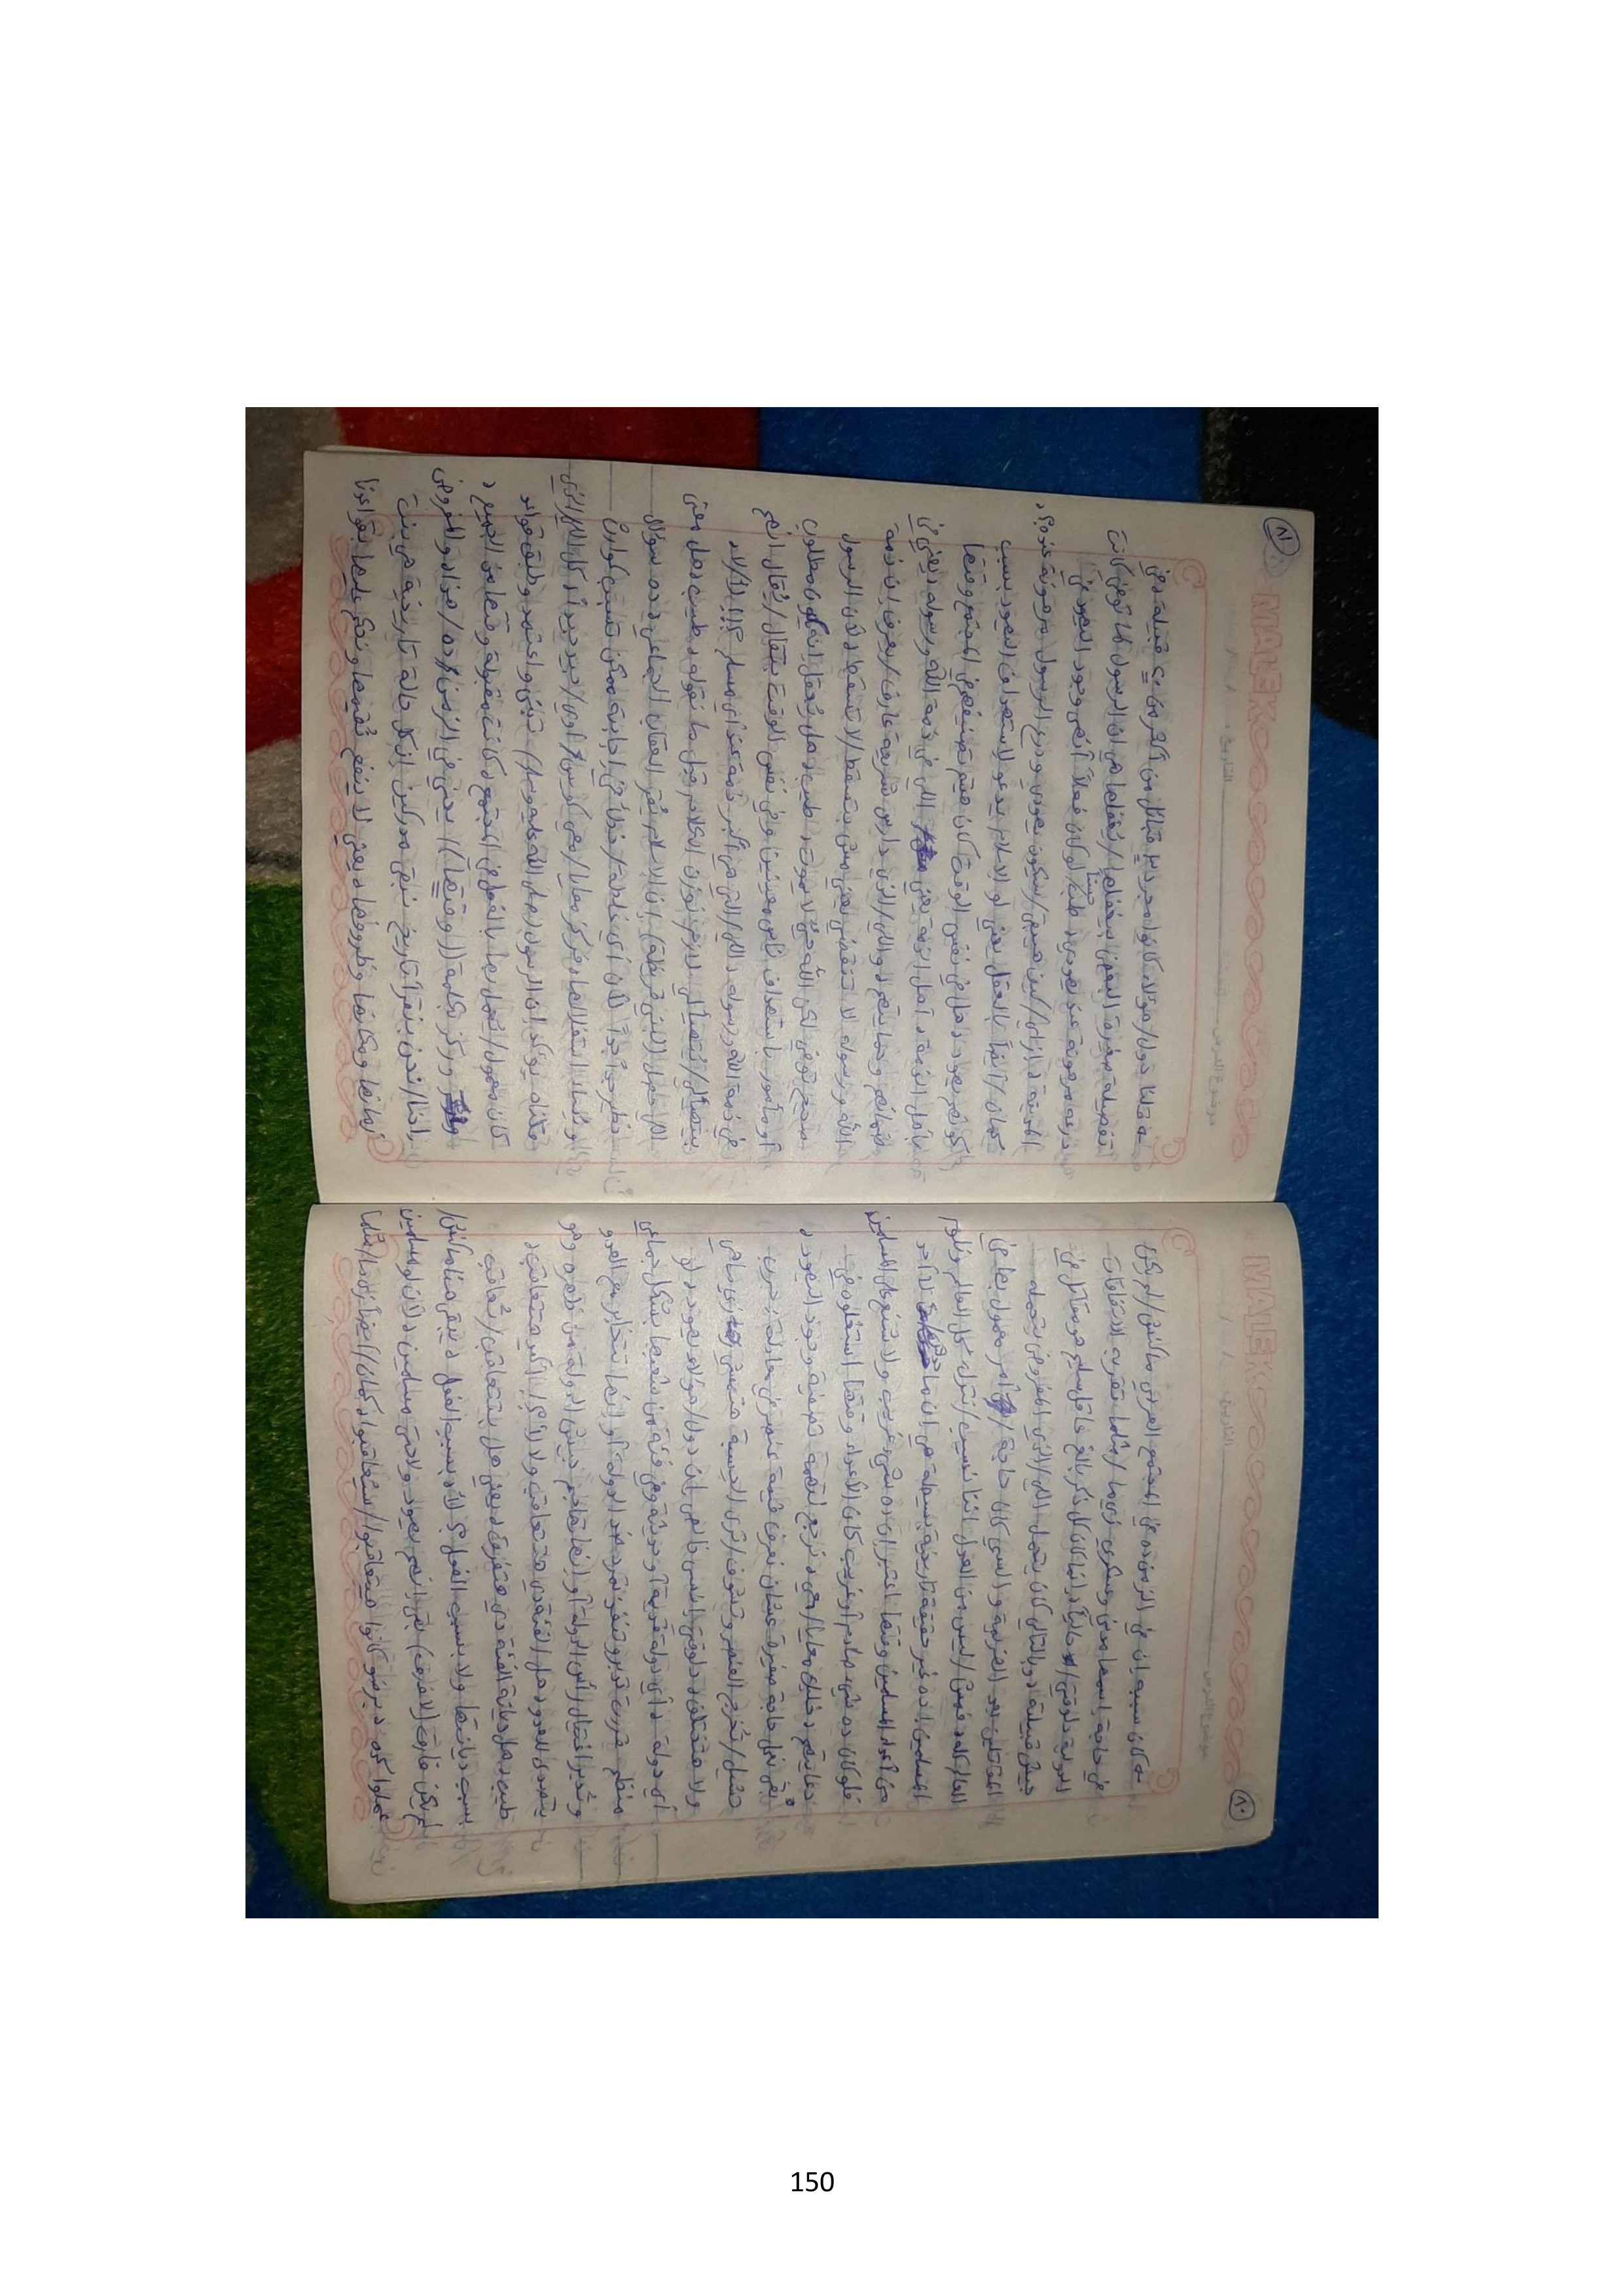 MALEK
التاريخ:    /    /
موضوع الدرس
٨٠
كان سببه ان في الزمن ده في المجتمع العربي ماكنش/لم يكن
في حاجة اسمها مدني وعسكري زي ما/مثلما تقريه الاتفاقات
الدولية دلوقتي/حالياً، إنما كان كل ذكر بالغ عاقل سليم هو مقاتل في
جيش قبيلته، وبالتالي كان يتحمل اللي/الذي المفروض يتحمله
المقاتلين بعد الهزيمة، والسبي كان حاجة/أمر معمول بها في
العالم كله، فمش/ليس من العدل اننا نسيب/نترك كل العالم ونلوم
المسلمين! ده غير حقيقة تاريخية بسيطة هي ان ما حدش/لا أحد
من أعداء المسلمين وقتها اعتبر إن ده شيء غريب ولا شنع على المسلمين
فلو كان ده شيء صادم أو غريب كان الأعداء وقتها استغلوه في
دعايتهم، خليك معايا/معي، نرجع لتهمة تصفية وجود اليهود،
بقى نحل حاجة صغيرة عشان نعرف قيمة عنصر في معادلة نجرب
نشيل/نُخرج العنصر ونشوف/نرى الحسبة هتمشي ازاي، ماهي
ولا هتختلف، دلوقتي انسى خالص ان دول/هؤلاء يهود، لو
أي دولة، أي دولة قديمة أو حديثة وفي فئة من شعبها بشكل جماعي
منظم قررت تدبر وتنفذ تمرد ضد الدولة أو انها تتخابر مع العدو
وتدبر اغتيال رأس الدولة أو انها تهاجم جيش الدولة من ظهره وهو
يتصدى للعدو، هل الفئة دي هتتعاقب ولا لأ؟! أكيد هتتعاقب،
طيب هل ديانة الفئة دي هتفرق، يعني هل بتتعاقب/تُعاقب
بسبب ديانتها ولا بسبب الفعل؟ لأ بسبب الفعل، يبقى هنا ماكنش/
لم يكن فارق (لا فرق) بقى انهم يهود ولا حتى مسلمين، لأن لو المسلمين
عملوا كده، برضو كانوا هيتعاقبوا/سيُعاقبوا، كمان/ايضاً زي ما/مثلما
MALEK
التاريخ:    /    /
موضوع الدرس
٨١
قلنا دول/هؤلاء كانوا مجرد ٣ قبائل من أكتر من ٢٠ قبيلة، في
تفصيلة صغيرة البعض بيغفلها/يُغفلها هي ان الرسول لما توفى كانت
درعه مرهونة عند يهودي، طيب لو كان فعلاً أنهى وجود اليهود في
المدينة، ازاي/كيف هيبقى/سيكون يهودي ودرع الرسول مرهونة عنده؟،
كمان/أيضاً بالعقل يعني لو الاسلام يدعو لاستهداف اليهود بسبب
كونهم يهود، هل في نفس الوقت كان هيتم تصنيفهم في المجتمع وقتها
بأهل الذمة، أهل الذمة يعني اللي في ذمة الله ورسوله، يعني في
ضمانهم وحمايتهم، واللي/الذي دارس شريعة عارف/يعرف إن ذمة
الله ورسوله لا تنقضي يعني مش بتسقط/لا تسقط، لأن الرسول
صحيح توفى لكن الله حيٌّ لا يموت، طيب هل يُعقل انهم يكون مطلوب
أو مأمور باستهداف ناس معينين وفي نفس الوقت يتقال/يُقال انهم
في ذمة الله ورسوله، اللي/التي هي أكبر ذمة عند أي مسلم؟!!! لأ/لا،
بيتهيألي/يُتهيأ لي لازم نوزن الكلام قبل ما نقوله، طيب هل معنى
اللي حصل (لبني قريظة) إن الاسلام يُقر العقاب الجماعي؟، ده سؤال
خطير جداً لأن أي إجابة خاطئة/خطأ في إجابته ممكن تسبب كوارث
وتُساء استغلالها، فركز معايا/معي كويس أوي/جيد جيداً، كل اللي/الذي
فات ده يؤكد إن الرسول (صلى الله عليه وسلم) تبنى واعتمد وطبق قواعد
كان معمول/يُعمل بها بالفعل في المجتمع، كانت مقبولة وقتها من الجميع،
وركز بكلمة ((وقتها))، يعني في الزمن ده/هذا، والمفروض
إننا/نحن بنقرا تاريخ نبقى مدركين ان كل حالة تاريخية هي بنت
زمانها ومكانها وظروفها، يعني لا ينفع نُقيمها ونحكم عليها بقواعدنا
150